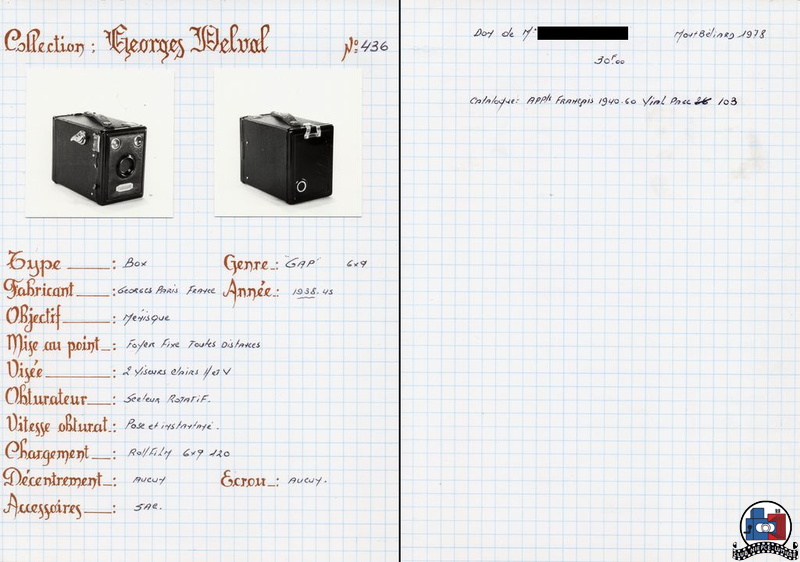 Collection : Georges Delval Nº 436
Type : Box
Genre : "GAP" 6x9
Fabricant : Georges Paris France
Année : 1938-45
Objectif : Ménisque
Mise au point : Foyer Fixe Toutes Distances
Visée : 2 Viseurs Clairs H et V
Obturateur : Secteur Rotatif.
Vitesse obturat : Pose et instantané.
Chargement : Rollfilm 6x9 120
Décentrement : Aucun
Ecrou : Aucun.
Accessoires : SAC.
Don de Mr Montbéliard 1978
30F00
Catalogue: APPts Français 1940-60 Vial Page 103